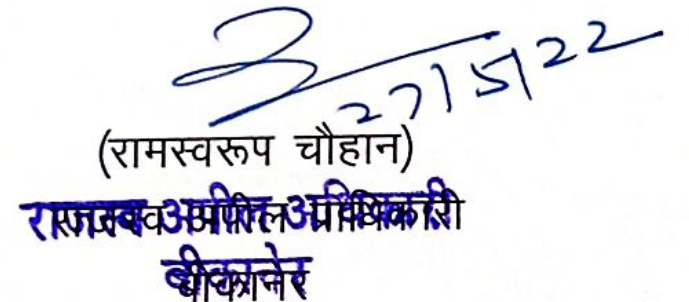 27/5/22
(रामस्वरूप चौहान)
राजस्व अपील प्राधिकारी
बीकानेर